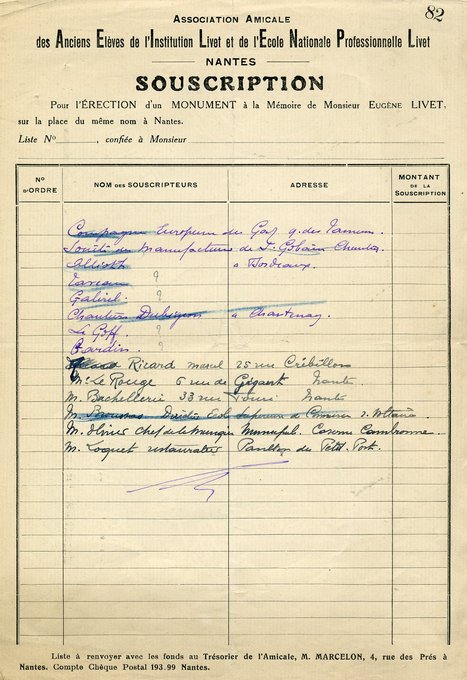 82
ASSOCIATION AMICALE
des Anciens Elèves de l'Institution Livet et de l'Ecole Nationale Professionnelle Livet
NANTES
SOUSCRIPTION
Pour l'ÉRECTION d'un MONUMENT à la Mémoire de Monsieur EUGÈNE LIVET,
sur la place du même nom à Nantes.
Liste No , confiée à Monsieur
No D'ORDRE NOM DES SOUSCRIPTEURS ADRESSE MONTANT DE LA SOUSCRIPTION
Compagnie Européenne des Gaz q. des
Société des Manufactures de St Gobain Chantenay
à Bordeaux.
?
Gabriel ?
Chantiers Dubigeon à Chantenay
Le Goff ?
Bardin ?
Ricard marcel 25 rue Crébillon
Mr Le Rouge 6 rue de Gigant Nantes
M. Bachellerie 33 rue Nantes
M. Ecole Supérieure de Commerce r. Voltaire
M. Chef de la musique Municipale Caserne Cambronne
M. Loquet restaurateur Pavillon du Petit Port
Liste à renvoyer avec les fonds au Trésorier de l'Amicale, M. MARCELON, 4, rue des Prés à
Nantes. Compte Chèque Postal 193.99 Nantes.